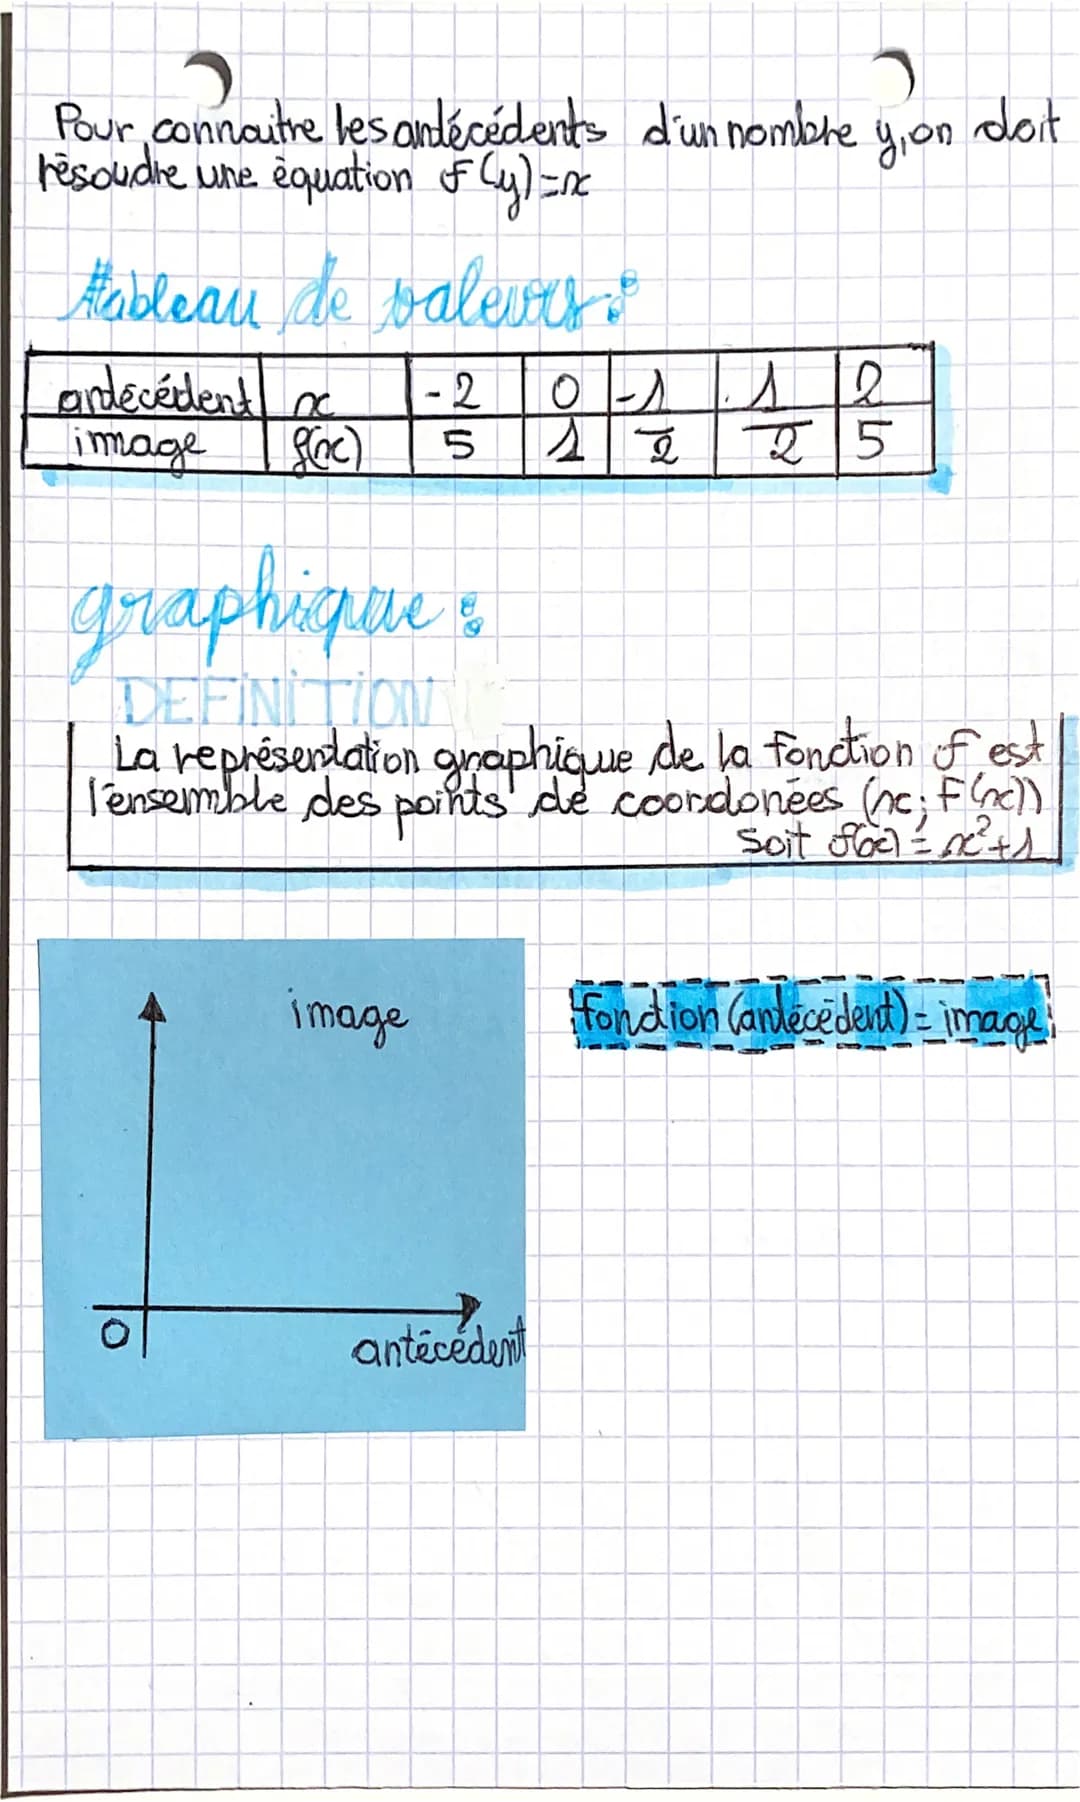 Pour connaitre les antécédents d'un nombre y, on doit
résoudre une équation f(y)=x
tableau de valeurs :
antécédent x -2 0 -1 1 2
image f(x) 5 1 2 2 5
graphique :
DEFINITION
La représentation graphique de la fonction f est
l'ensemble des points de coordonées (x; F(x))
Soit f(x) = x²+1
image
fonction (antécédent) = image
O
antécédent